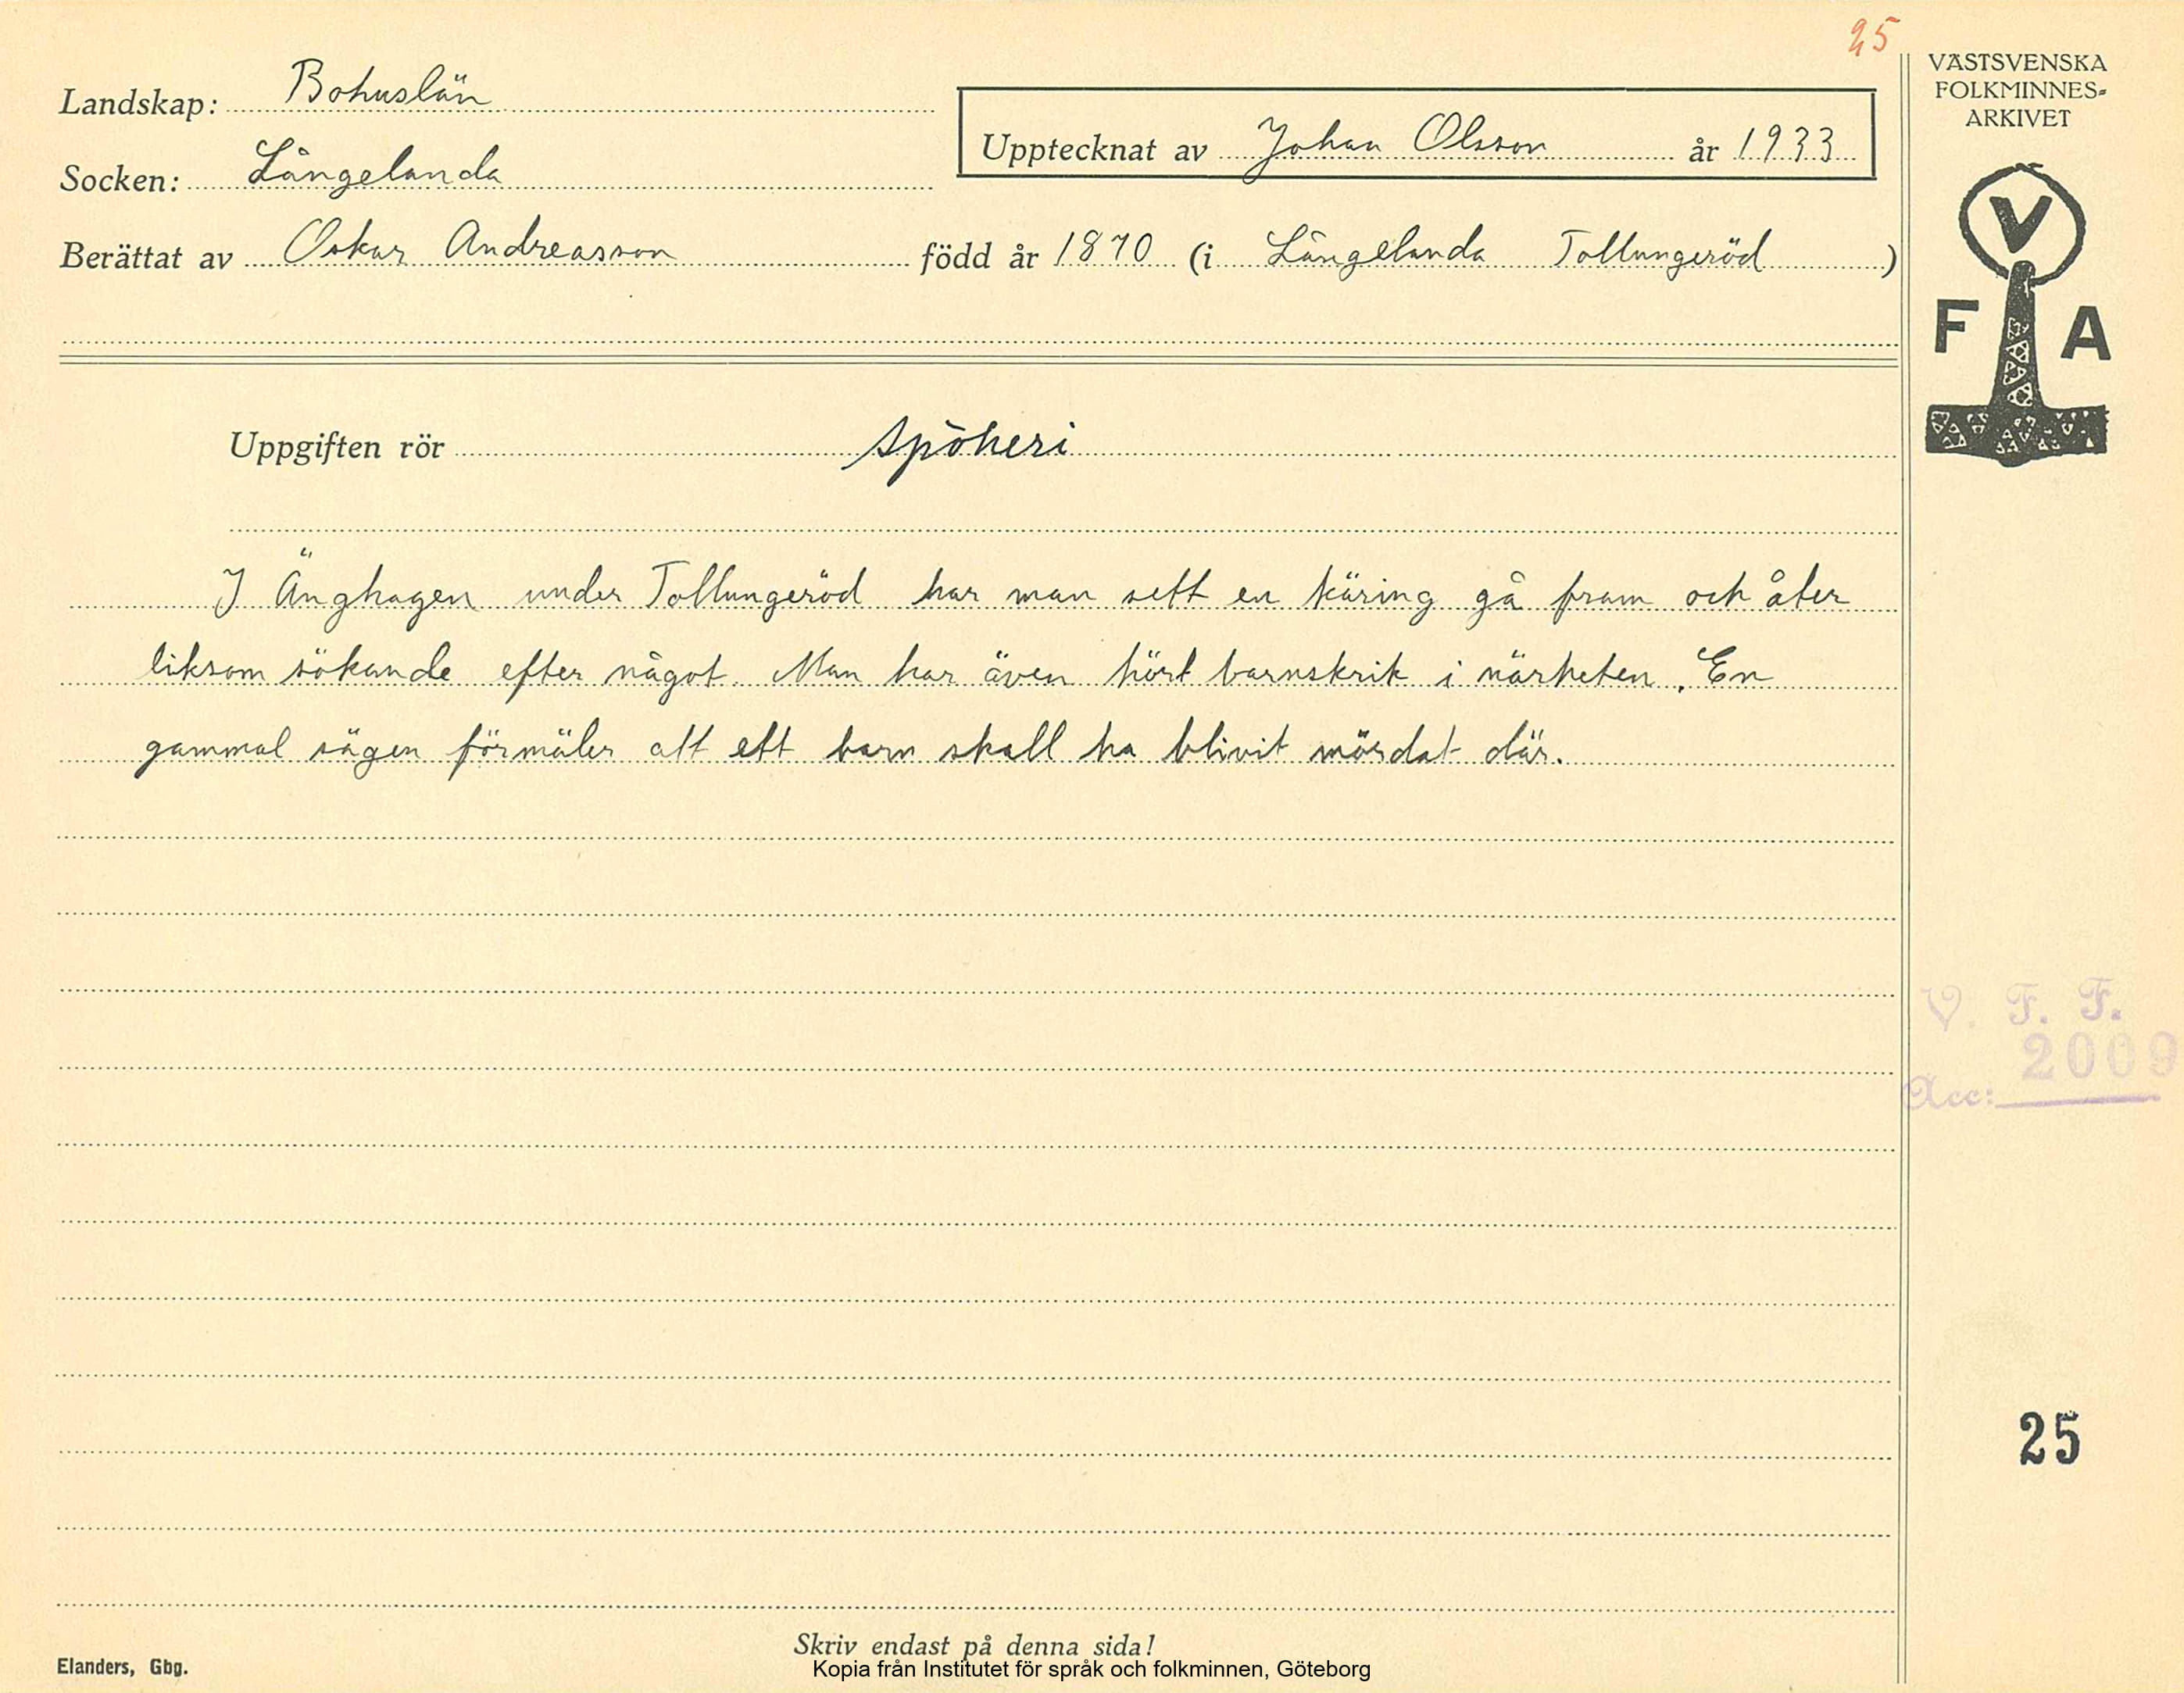 25
Landskap: Bohuslän
Socken: Långelanda
Upptecknat av Johan Olsson år 1933
Berättat av Oskar Andreasson född år 1870 (i Långelanda Tollungeröd)
VÄSTSVENSKA
FOLKMINNES-
ARKIVET
V
F A
Uppgiften rör spökeri
I Änghagen under Tollungeröd har man sett en käring gå fram och åter
liksom sökande efter något. Man har även hört barnskrik i närheten. En
gammal sägen förmäler att ett barn skall ha blivit mördat där.
V. F. F.
2009
Acc:
25
Skriv endast på denna sida!
Elanders, Gbg.
Kopia från Institutet för språk och folkminnen, Göteborg